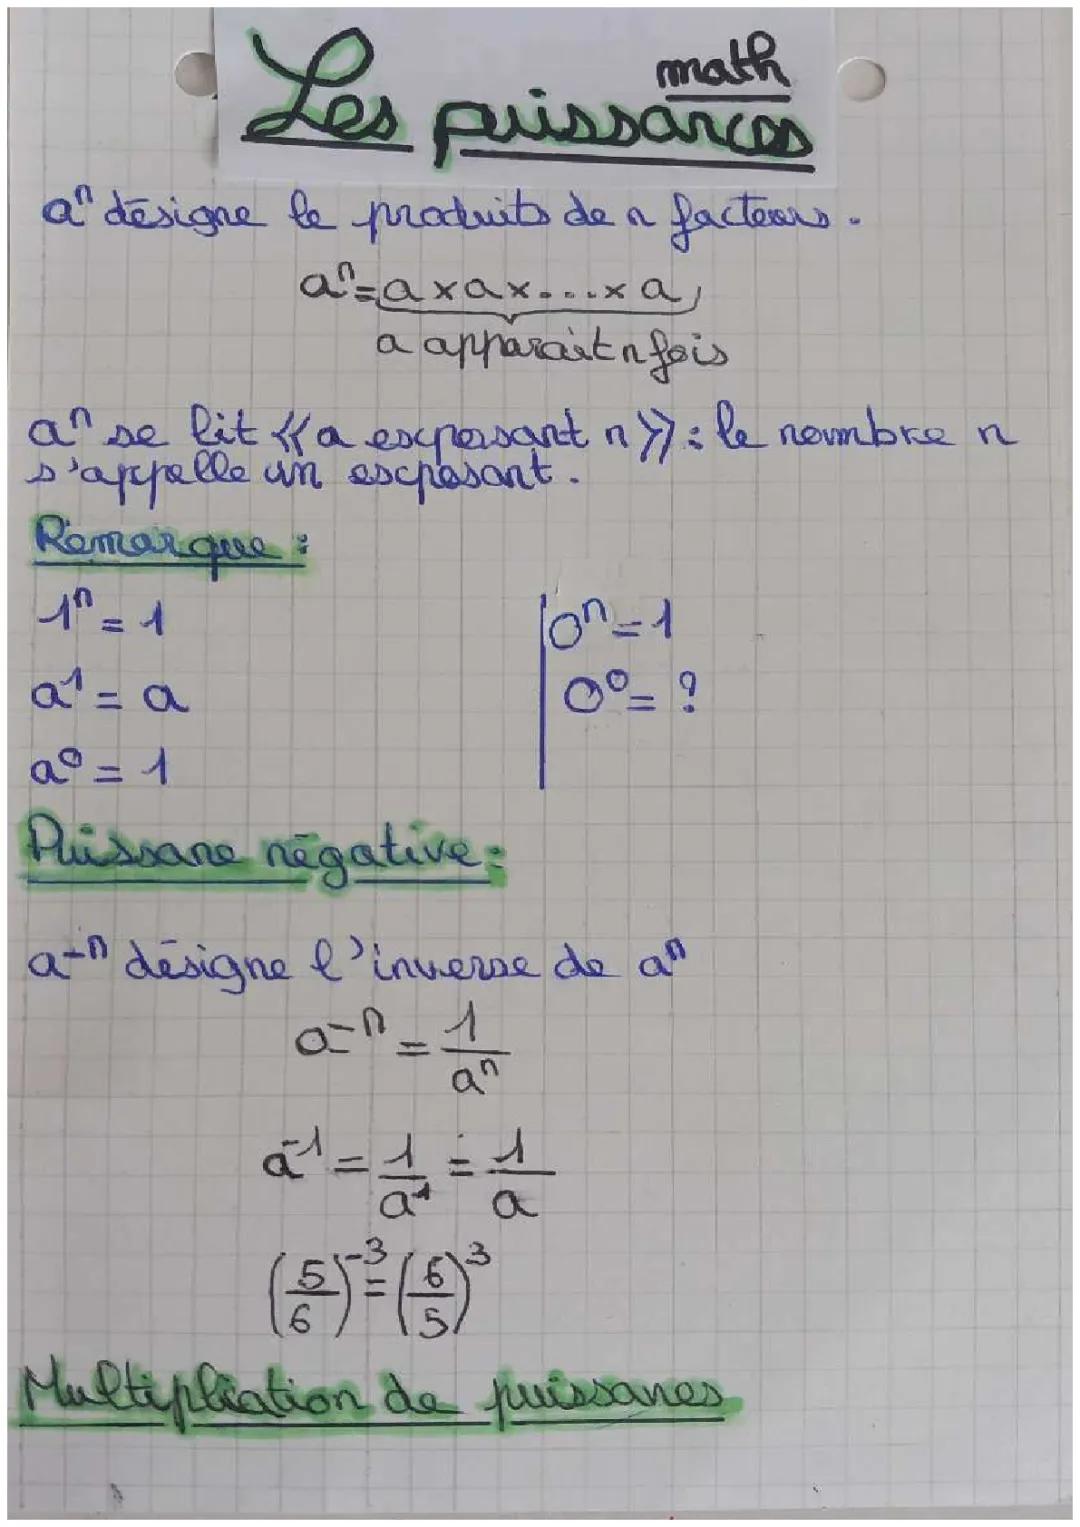 math
Les puissances
aⁿ désigne le produits de n facteurs.
aⁿ = a × a × ... × a,
a apparait n fois
aⁿ se lit « a exposant n » : le nombre n
s'appelle un exposant.
Remarque :
1ⁿ = 1
a¹ = a
a⁰ = 1
0ⁿ = 1
0⁰ = ?
Puissane négative :
a⁻ⁿ désigne l'inverse de aⁿ
a⁻ⁿ = 1/aⁿ
a⁻¹ = 1/a¹ = 1/a
(5/6)⁻³ = (6/5)³
Multipliation de puissanes